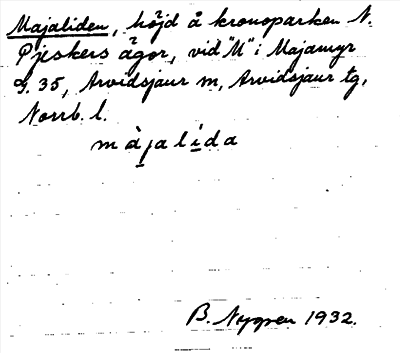 Majaliden, höjd å kronoparken N.
Pjeskers ägor, vid "M" i Majamyr
G. 35, Arvidsjaur sn, Arvidsjaur tg,
Norrb. l.
màjalída
B. Nygren 1932.